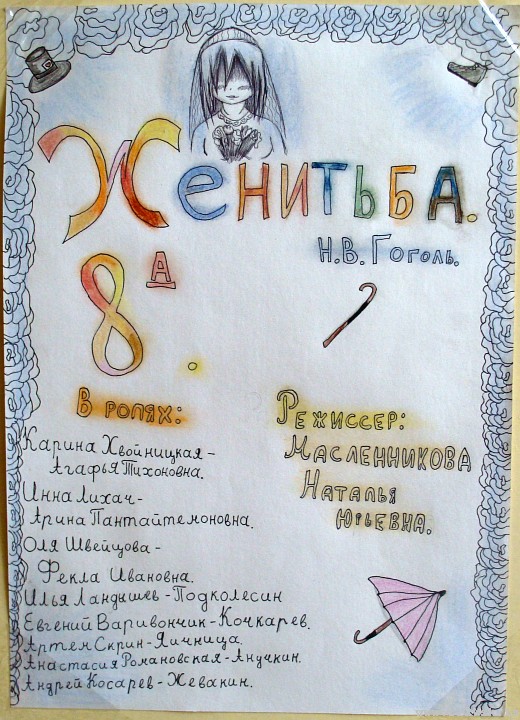 Женитьба.
Н.В. Гоголь.
8А.
В ролях:
Карина Хвойницкая-
Агафья Тихоновна.
Инна Лихач-
Арина Пантайтемоновна.
Оля Швейцова-
Фекла Ивановна.
Илья Ландышев-Подколесин
Евгений Варивончик-Кочкарев.
Артем Скрин-Яичница.
Анастасия Романовская-Анучкин.
Андрей Косарев-Жевакин.
Режиссер:
Масленникова
Наталья
Юрьевна.